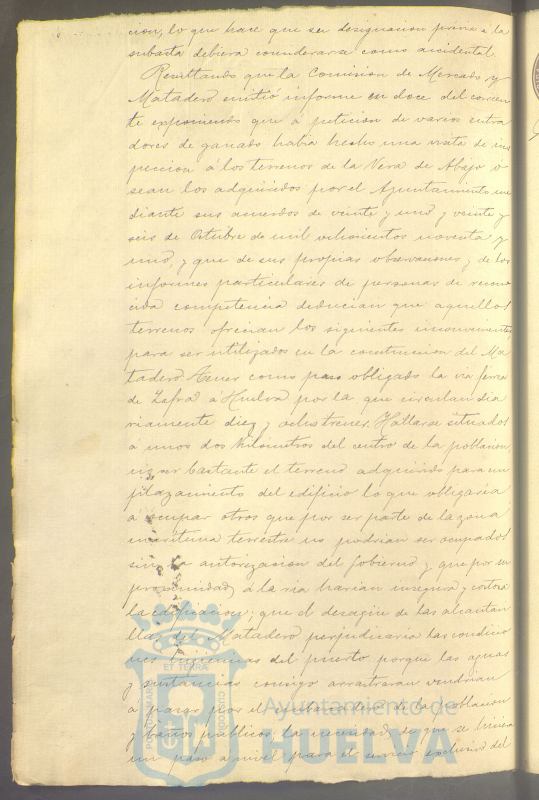 cion, lo que hace que su designacion prévia á la
subasta debiera considerarse como accidental.
Resultando que la Comision de Mercado y
Matadero emitió informe en doce del corrien
te exponiendo que á peticion de varios entra
dores de ganado habia hecho una visita de ins
peccion á los terrenos de la Vera de Abajo ó
sean los adquiridos por el Ayuntamiento me
diante sus acuerdos de veinte y uno y veinte y
seis de Octubre de mil ochocientos noventa y
uno, y que de sus propias observaciones y de los
informes particulares de personas de recono
cida competencia deducian que aquellos
terrenos ofrecian los siguientes inconvenientes
para ser utilizados en la construccion del Ma
tadero. Tener como paso obligado la via ferrea
de Zafra a Huelva por la que circulan dia
riamente diez y ocho trenes. Hallarse situados
a unos dos kilómetros del centro de la poblacion,
no ser bastante el terreno adquirido para em
plazamiento del edificio lo que obligaria
a ocupar otros que por ser parte de la zona
maritima terrestre no podrian ser ocupados
sin la autorizacion del Gobierno y que por su
proximidad á la ria harian insegura y costosa
la edificacion; que el desagüe de las alcantari
llas del Matadero perjudicaria las condicio
nes del puerto porque las aguas
y sustancias consigo arrastraran vendrian
a parar por el embarcadero de la poblacion
y baños públicos; la necesidad de que se hiciera
un paso a nivel para el servicio exclusivo del
ET TERRA
PORTUS MARIS
CUSTODIA
Ayuntamiento de
HUELVA